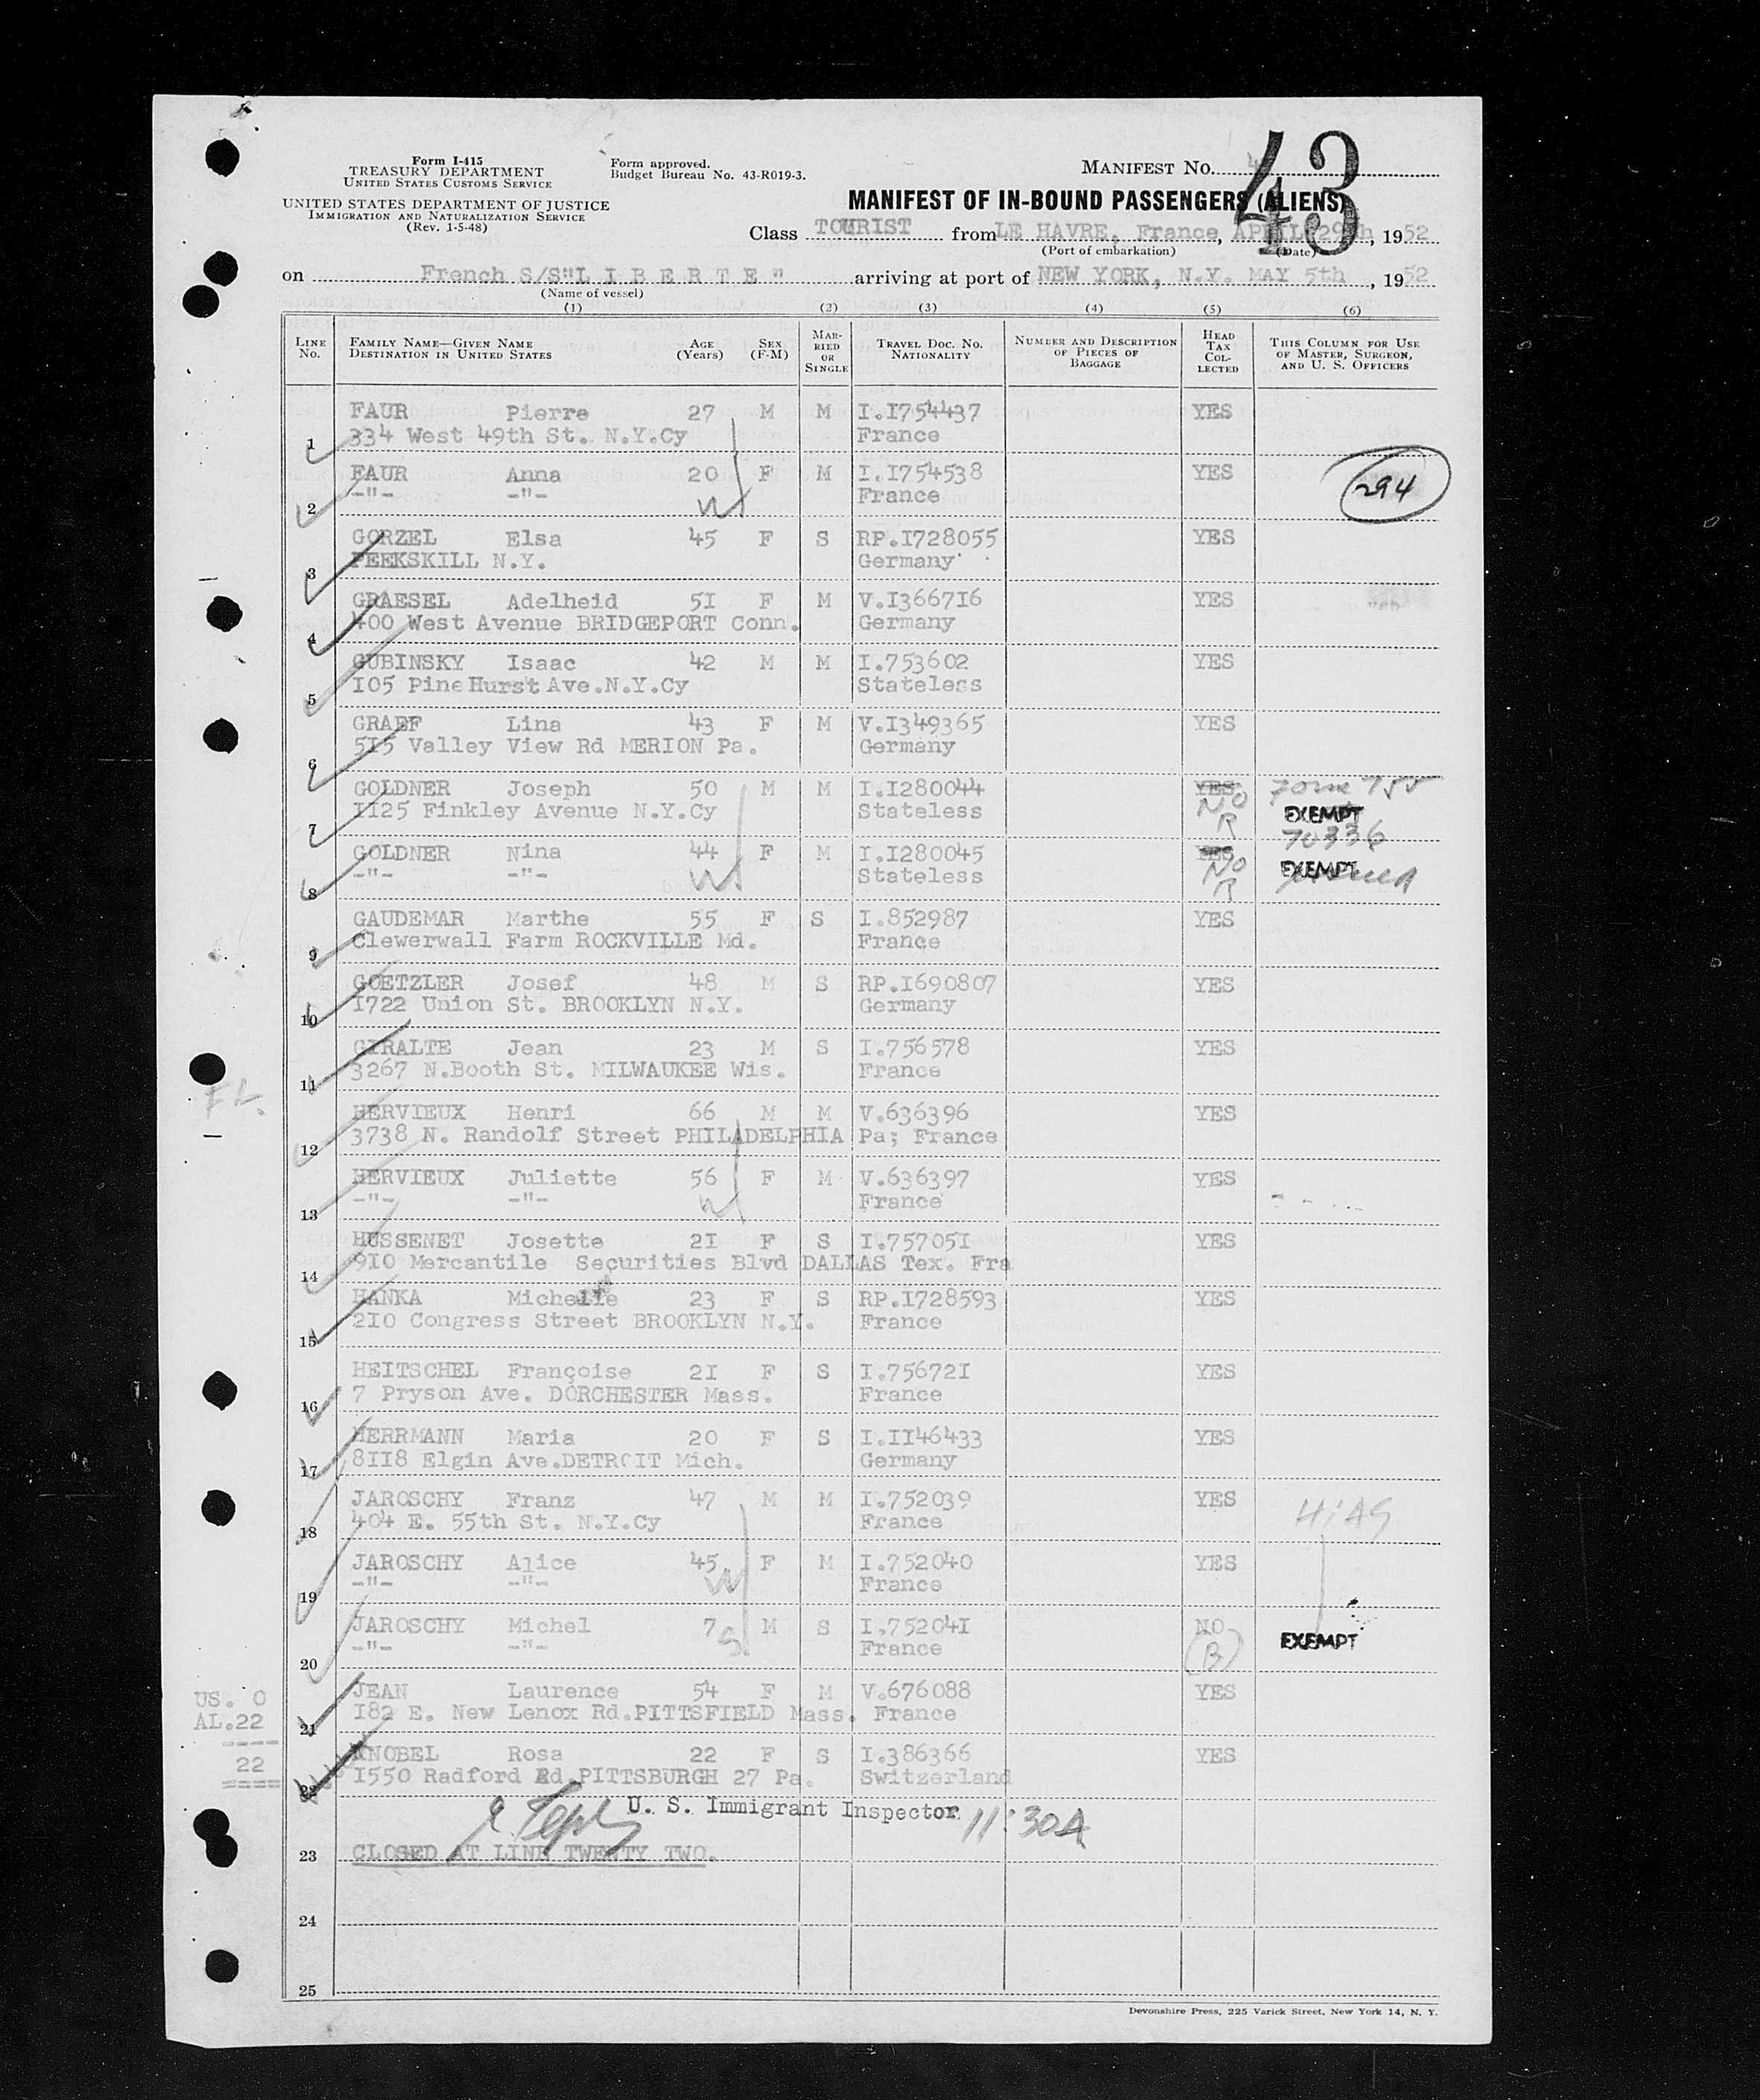 Form I-415
TREASURY DEPARTMENT
UNITED STATES CUSTOMS SERVICE
UNITED STATES DEPARTMENT OF JUSTICE
IMMIGRATION AND NATURALIZATION SERVICE
(Rev. 1-5-48)
Form approved.
Budget Bureau No. 43-R019-3.
MANIFEST No. 43
MANIFEST OF IN-BOUND PASSENGERS (ALIENS)
Class TOURIST from LE HAVRE, France, APRIL 29th, 1952
(Port of embarkation) (Date)
on French S/S"L I B E R T E" arriving at port of NEW YORK, N.Y. MAY 5th, 1952
(Name of vessel)
(1) (2) (3) (4) (5) (6)
LINE No. FAMILY NAME—GIVEN NAME DESTINATION IN UNITED STATES AGE (Years) SEX (F-M) MARRIED OR SINGLE TRAVEL DOC. No. NATIONALITY NUMBER AND DESCRIPTION OF PIECES OF BAGGAGE HEAD TAX COLLECTED THIS COLUMN FOR USE OF MASTER, SURGEON, AND U. S. OFFICERS
FAUR Pierre 27 M M I.I754437 YES
1 334 West 49th St. N.Y.Cy France
FAUR Anna 20 F M I.I754538 YES 294
2 -"- -"- W France
GORZEL Elsa 45 F S RP.I728055 YES
3 PEEKSKILL N.Y. Germany
GRAESEL Adelheid 5I F M V.I3667I6 YES
4 400 West Avenue BRIDGEPORT Conn. Germany
GUBINSKY Isaac 42 M M I.753602 YES
5 I05 Pine Hurst Ave.N.Y.Cy Stateless
GRAEF Lina 43 F M V.I349365 YES
6 5I5 Valley View Rd MERION Pa. Germany
GOLDNER Joseph 50 M M I.I280044 YES
7 II25 Finkley Avenue N.Y.Cy Stateless NO R EXEMPT
70336
GOLDNER Nina 44 F M I.I280045 YES
8 -"- -"- W Stateless NO R EXEMPT
GAUDEMAR Marthe 55 F S I.852987 YES
9 Clewerwall Farm ROCKVILLE Md. France
GOETZLER Josef 48 M S RP.I690807 YES
10 I722 Union St. BROOKLYN N.Y. Germany
GIRALTE Jean 23 M S I.756578 YES
11 3267 N.Booth St. MILWAUKEE Wis. France
HERVIEUX Henri 66 M M V.636396 YES
12 3738 N. Randolf Street PHILADELPHIA Pa; France
HERVIEUX Juliette 56 F M V.636397 YES
13 -"- -"- W France
HUSSENET Josette 2I F S I.75705I YES
14 9I0 Mercantile Securities Blvd DALLAS Tex. Fra
HANKA Michelle 23 F S RP.I728593 YES
15 2I0 Congress Street BROOKLYN N.Y. France
HEITSCHEL Françoise 2I F S I.75672I YES
16 7 Pryson Ave. DORCHESTER Mass. France
HERRMANN Maria 20 F S I.II46433 YES
17 8II8 Elgin Ave.DETROIT Mich. Germany
JAROSCHY Franz 47 M M I.752039 YES
18 404 E. 55th St. N.Y.Cy France
JAROSCHY Alice 45 F M I.752040 YES
19 -"- -"- W France
JAROSCHY Michel 7 M S I.75204I NO
20 -"- -"- S France (B) EXEMPT
JEAN Laurence 54 F M V.676088 YES
21 I82 E. New Lenox Rd.PITTSFIELD Mass. France
KNOBEL Rosa 22 F S I.386366 YES
22 I550 Radford Rd.PITTSBURGH 27 Pa. Switzerland
US. 0
AL.22
----
22
====
U. S. Immigrant Inspector 11:30A
23 CLOSED AT LINE TWENTY TWO.
24
25
Devonshire Press, 225 Varick Street, New York 14, N. Y.